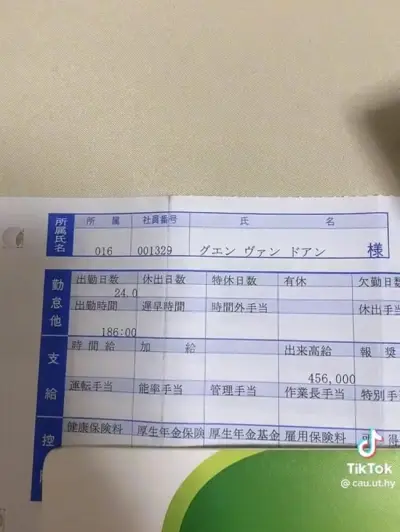 所属氏名 所属 社員番号 氏名
016 001329 グエン ヴァン ドアン 様
勤怠他 出勤日数 休出日数 特休日数 有休 欠勤日
24.0
出勤時間 遅早時間 時間外手当 休出手
186:00
支給 時間給 加給 出来高給 報奨
456,000
運転手当 能率手当 管理手当 作業長手当 特別手
控 健康保険料 厚生年金保険 厚生年金基金 雇用保険料 得
TikTok
@cau.ut.hy